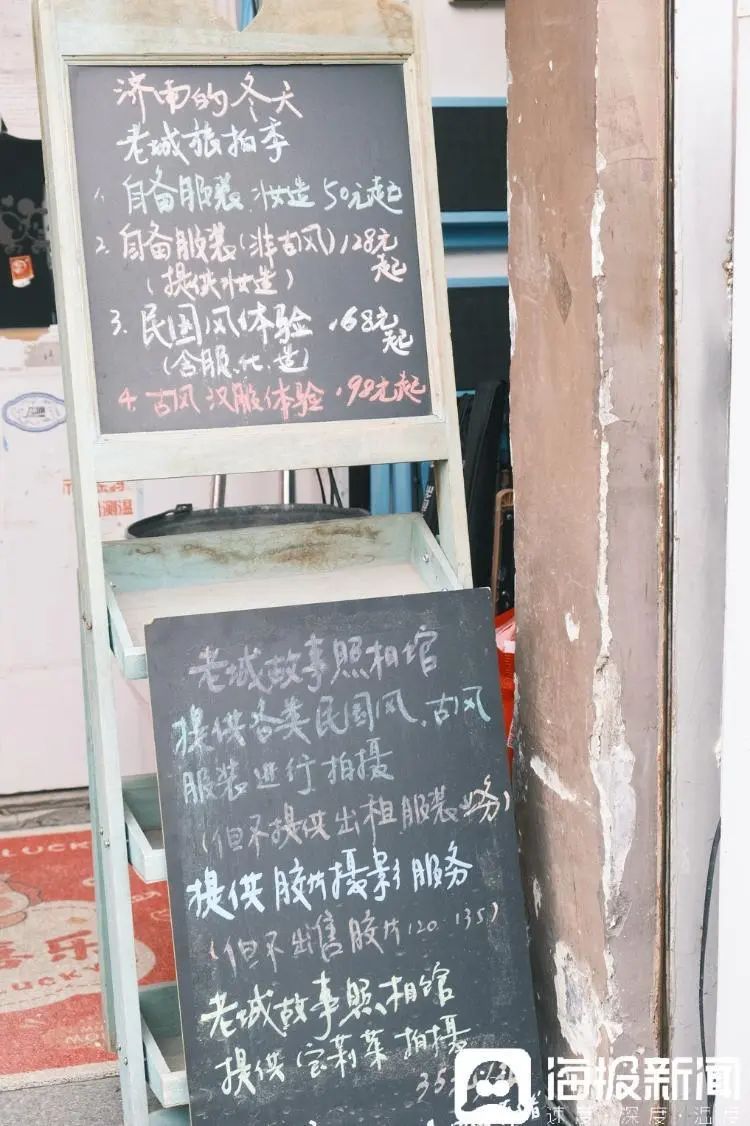 济南的冬天
老城旅拍季
1. 自备服装 妆造 50元起
2. 自备服装(非古风) 128元
起
(提供妆造)
3. 民国风体验 168元
起
(含服.化.造)
4. 古风 汉服体验 198元起
测温
老城故事照相馆
提供各类民国风、古风
服装进行拍摄
(但不提供出租服装业务)
提供胶片摄影服务
(但不出售胶片120 135)
老城故事照相馆
提供宝莉莱拍摄
35
LUCK
乐
LUCKY
海报新闻
速度·深度·温度